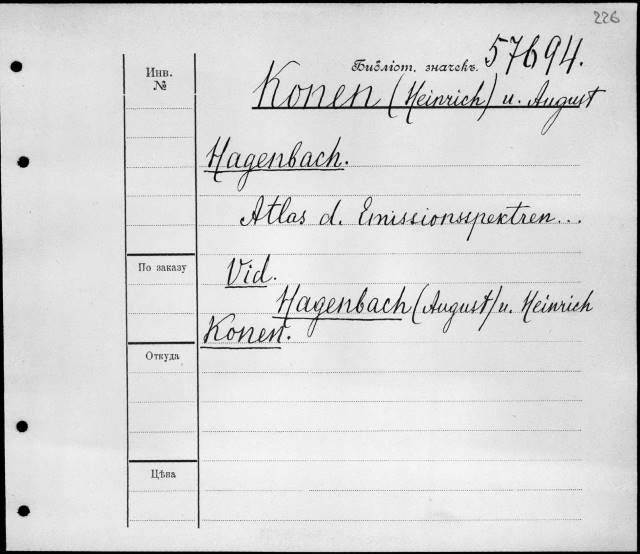 226
Библіот. значекъ. 57694.
Инв.
№
Konen (Heinrich) u. August
Hagenbach.
Atlas d. Emissionsspektren...
По заказу
Vid.
Hagenbach (August) u. Heinrich
Konen.
Откуда
Цѣна